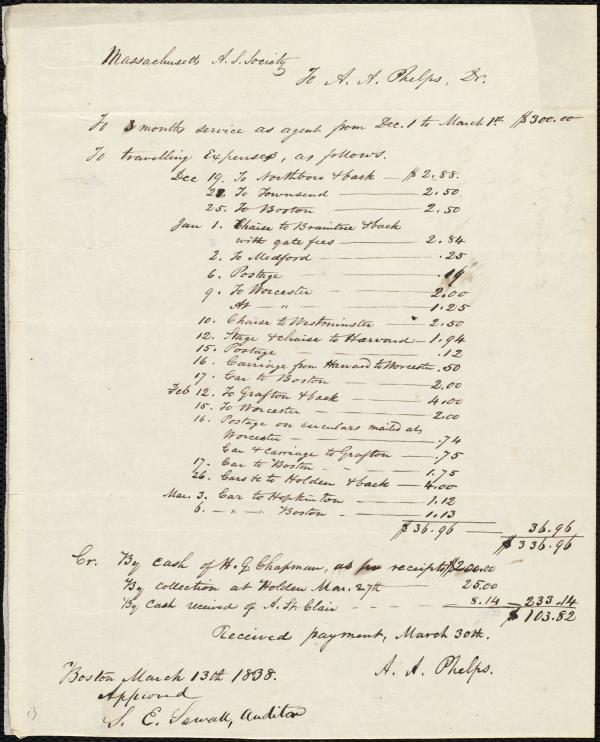 Massachusetts A. S. Society
To A. A. Phelps, Dr.
To 3 months service as agent from Dec. 1 to March 1st $300.00
To travelling Expenses, as follows.
Dec 19. To Northboro & back — $2.88.
To Townsend — 2.50
25. To Boston — 2.50
Jan 1. Chaise to Braintree & back
with gate fees — 2.84
2. To Medford — .25
6. Postage — .19
9. To Worcester — 2.00
At — " — 1.25
10. Chaise to Westminster — 2.50
12. Stage & chaise to Harvard — 1.94
15. Postage — .12
16. Carriage from Harvard to Worcester .50
17. Car to Boston — 2.00
Feb 12. To Grafton & back — 4.00
15. To Worcester — 2.00
16. Postage on circulars mailed at
Worcester — .74
Car & carriage to Grafton — .75
17. Car to Boston — 1.75
26. Cars &c to Holden & back — 4.00
Mar. 3. Car to Hopkinton — 1.12
6. — " — " Boston — 1.13
$36.96 — 36.96
$336.96
Cr. By cash of H. G. Chapman, as pr receipts $200.00
By collection at Holden Mar. 27th — 25.00
By cash received of A. St. Clair — 8.14 — 233.14
$103.82
Received payment, March 30th.
A. A. Phelps.
Boston March 13th 1838.
Approved
S. E. Sewall, Auditor